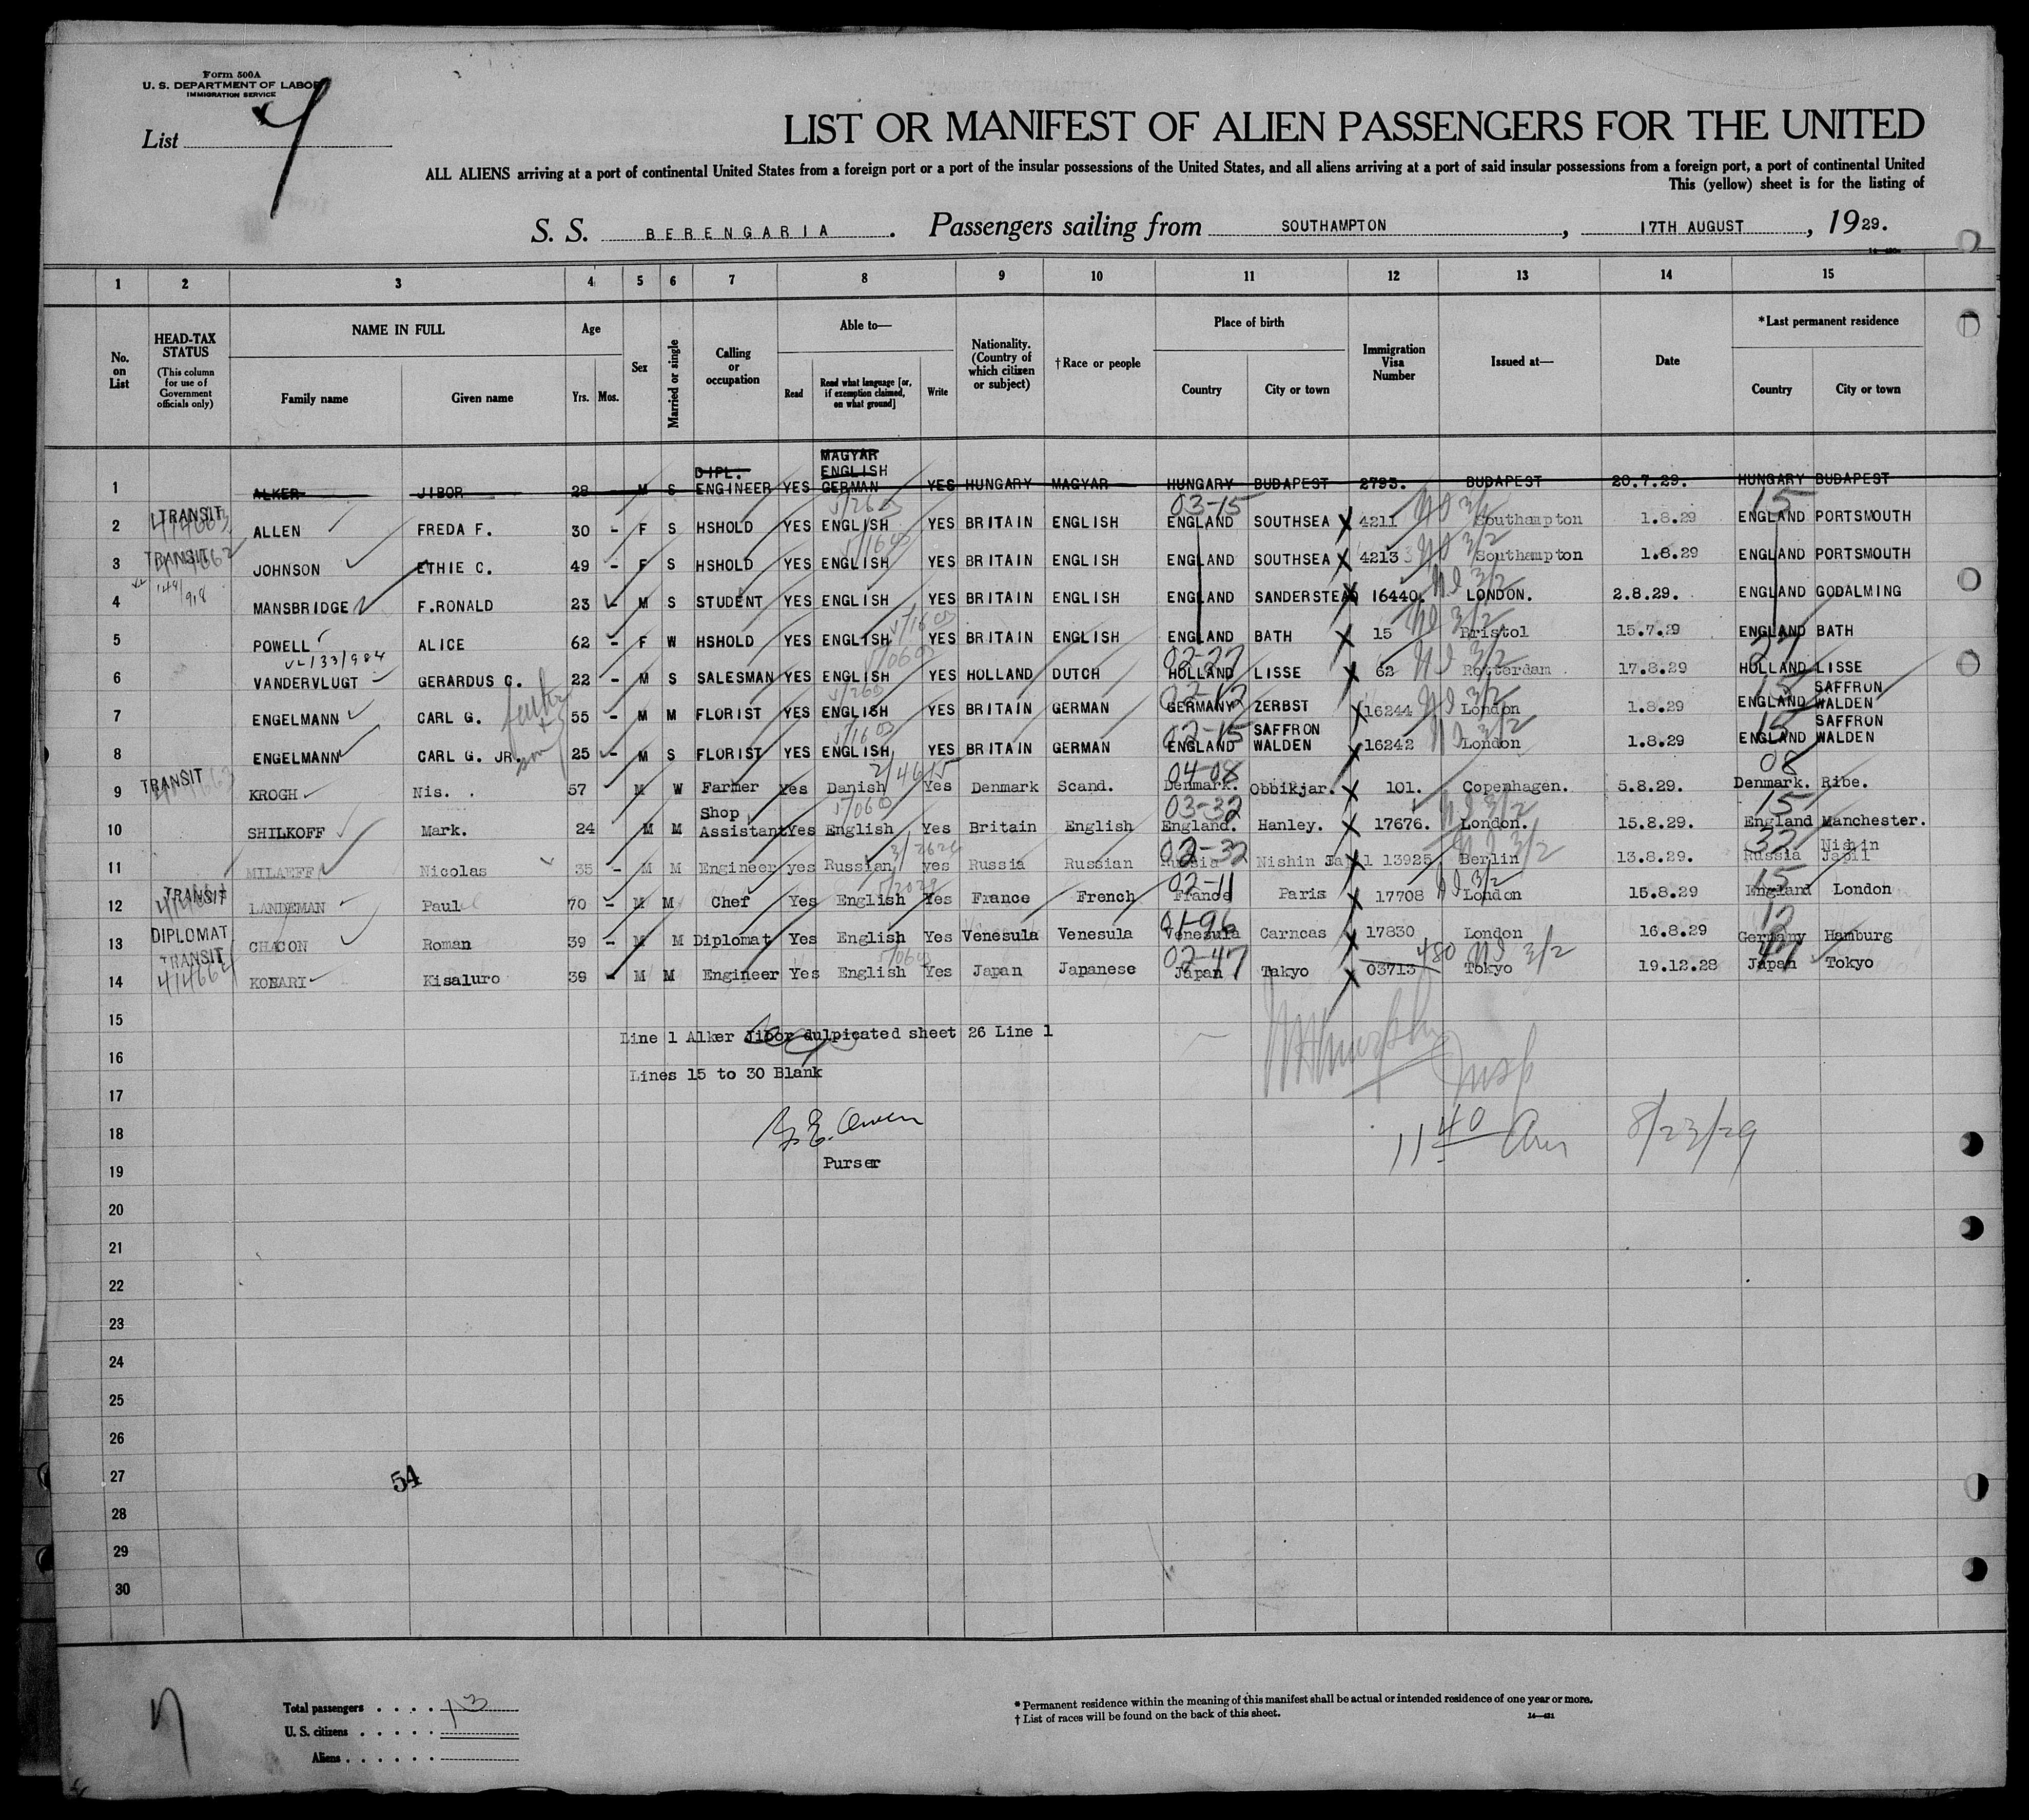 Form 500A
U. S. DEPARTMENT OF LABOR
IMMIGRATION SERVICE
List
LIST OR MANIFEST OF ALIEN PASSENGERS FOR THE UNITED
ALL ALIENS arriving at a port of continental United States from a foreign port or a port of the insular possessions of the United States, and all aliens arriving at a port of said insular possessions from a foreign port, a port of continental United
This (yellow) sheet is for the listing of
S. S. BERENGARIA. Passengers sailing from SOUTHAMPTON, 17TH AUGUST, 1929.
1 2 3 4 5 6 7 8 9 10 11 12 13 14 15
No. on List
HEAD-TAX STATUS
(This column for use of Government officials only)
NAME IN FULL
Family name
Given name
Age
Yrs. Mos.
Sex
Married or single
Calling or occupation
Able to—
Read
Read what language [or, if exemption claimed, on what ground]
Write
Nationality. (Country of which citizen or subject)
†Race or people
Place of birth
Country
City or town
Immigration Visa Number
Issued at—
Date
*Last permanent residence
Country
City or town
1 ALKER JIBOR 28 M S DIPL. ENGINEER YES MAGYAR ENGLISH GERMAN YES HUNGARY MAGYAR HUNGARY BUDAPEST 2793. BUDAPEST 20.7.29. HUNGARY BUDAPEST
2 TRANSIT ALLEN FREDA F. 30 - F S HSHOLD YES ENGLISH YES BRITAIN ENGLISH 03-15 ENGLAND SOUTHSEA 4211 Southampton 1.8.29 15 ENGLAND PORTSMOUTH
3 TRANSIT JOHNSON ETHIE C. 49 - F S HSHOLD YES ENGLISH YES BRITAIN ENGLISH ENGLAND SOUTHSEA 4213 Southampton 1.8.29 ENGLAND PORTSMOUTH
4 MANSBRIDGE F.RONALD 23 - M S STUDENT YES ENGLISH YES BRITAIN ENGLISH ENGLAND SANDERSTEAD 16440. LONDON. 2.8.29. ENGLAND GODALMING
5 POWELL ALICE 62 - F W HSHOLD YES ENGLISH YES BRITAIN ENGLISH ENGLAND BATH 15 Bristol 15.7.29 ENGLAND BATH
6 VANDERVLUGT GERARDUS C. 22 - M S SALESMAN YES ENGLISH YES HOLLAND DUTCH 02-27 HOLLAND LISSE 62 Rotterdam 17.8.29 27 HOLLAND LISSE
7 ENGELMANN CARL G. father 55 - M M FLORIST YES ENGLISH YES BRITAIN GERMAN 02-12 GERMANY ZERBST 16244 London 1.8.29 15 ENGLAND SAFFRON WALDEN
8 ENGELMANN CARL G. JR. son 25 - M S FLORIST YES ENGLISH YES BRITAIN GERMAN 02-15 ENGLAND SAFFRON WALDEN 16242 London 1.8.29 15 ENGLAND SAFFRON WALDEN
9 TRANSIT KROGH Nis. 57 M W Farmer Yes Danish Yes Denmark Scand. 04-08 Denmark. Obbikjar. 101. Copenhagen. 5.8.29. 08 Denmark. Ribe.
10 SHILKOFF Mark. 24 M M Shop Assistant Yes English Yes Britain English 03-32 England. Hanley. 17676. London. 15.8.29. 15 England Manchester.
11 MILAEFF Nicolas 35 - M M Engineer yes Russian yes Russia Russian 02-32 Russia Nishin 13925 Berlin 13.8.29. 32 Russia Nishin
12 TRANSIT LANDEMAN Paul 70 - M M Chef Yes English Yes France French 02-11 France Paris 17708 London 15.8.29 15 England London
13 DIPLOMAT CHACON Roman 39 - M M Diplomat Yes English Yes Venesula Venesula 01-96 Venesula Carncas 17830 London 16.8.29 12 Germany Hamburg
14 TRANSIT Kisaluro 39 - M M Engineer Yes English Yes Japan Japanese 02-47 Japan Takyo 03713 480 Tokyo 19.12.28 47 Japan Tokyo
15
Line 1 Alker Jibor dulpicated sheet 26 Line 1
16
Lines 15 to 30 Blank
17
Insp
18
Owen
11 40 am 8/23/29
19
Purser
20
21
22
23
24
25
26
27
54
28
29
30
Total passengers . . . . 13
U. S. citizens . . . . .
Aliens . . . . . .
* Permanent residence within the meaning of this manifest shall be actual or intended residence of one year or more.
† List of races will be found on the back of this sheet.